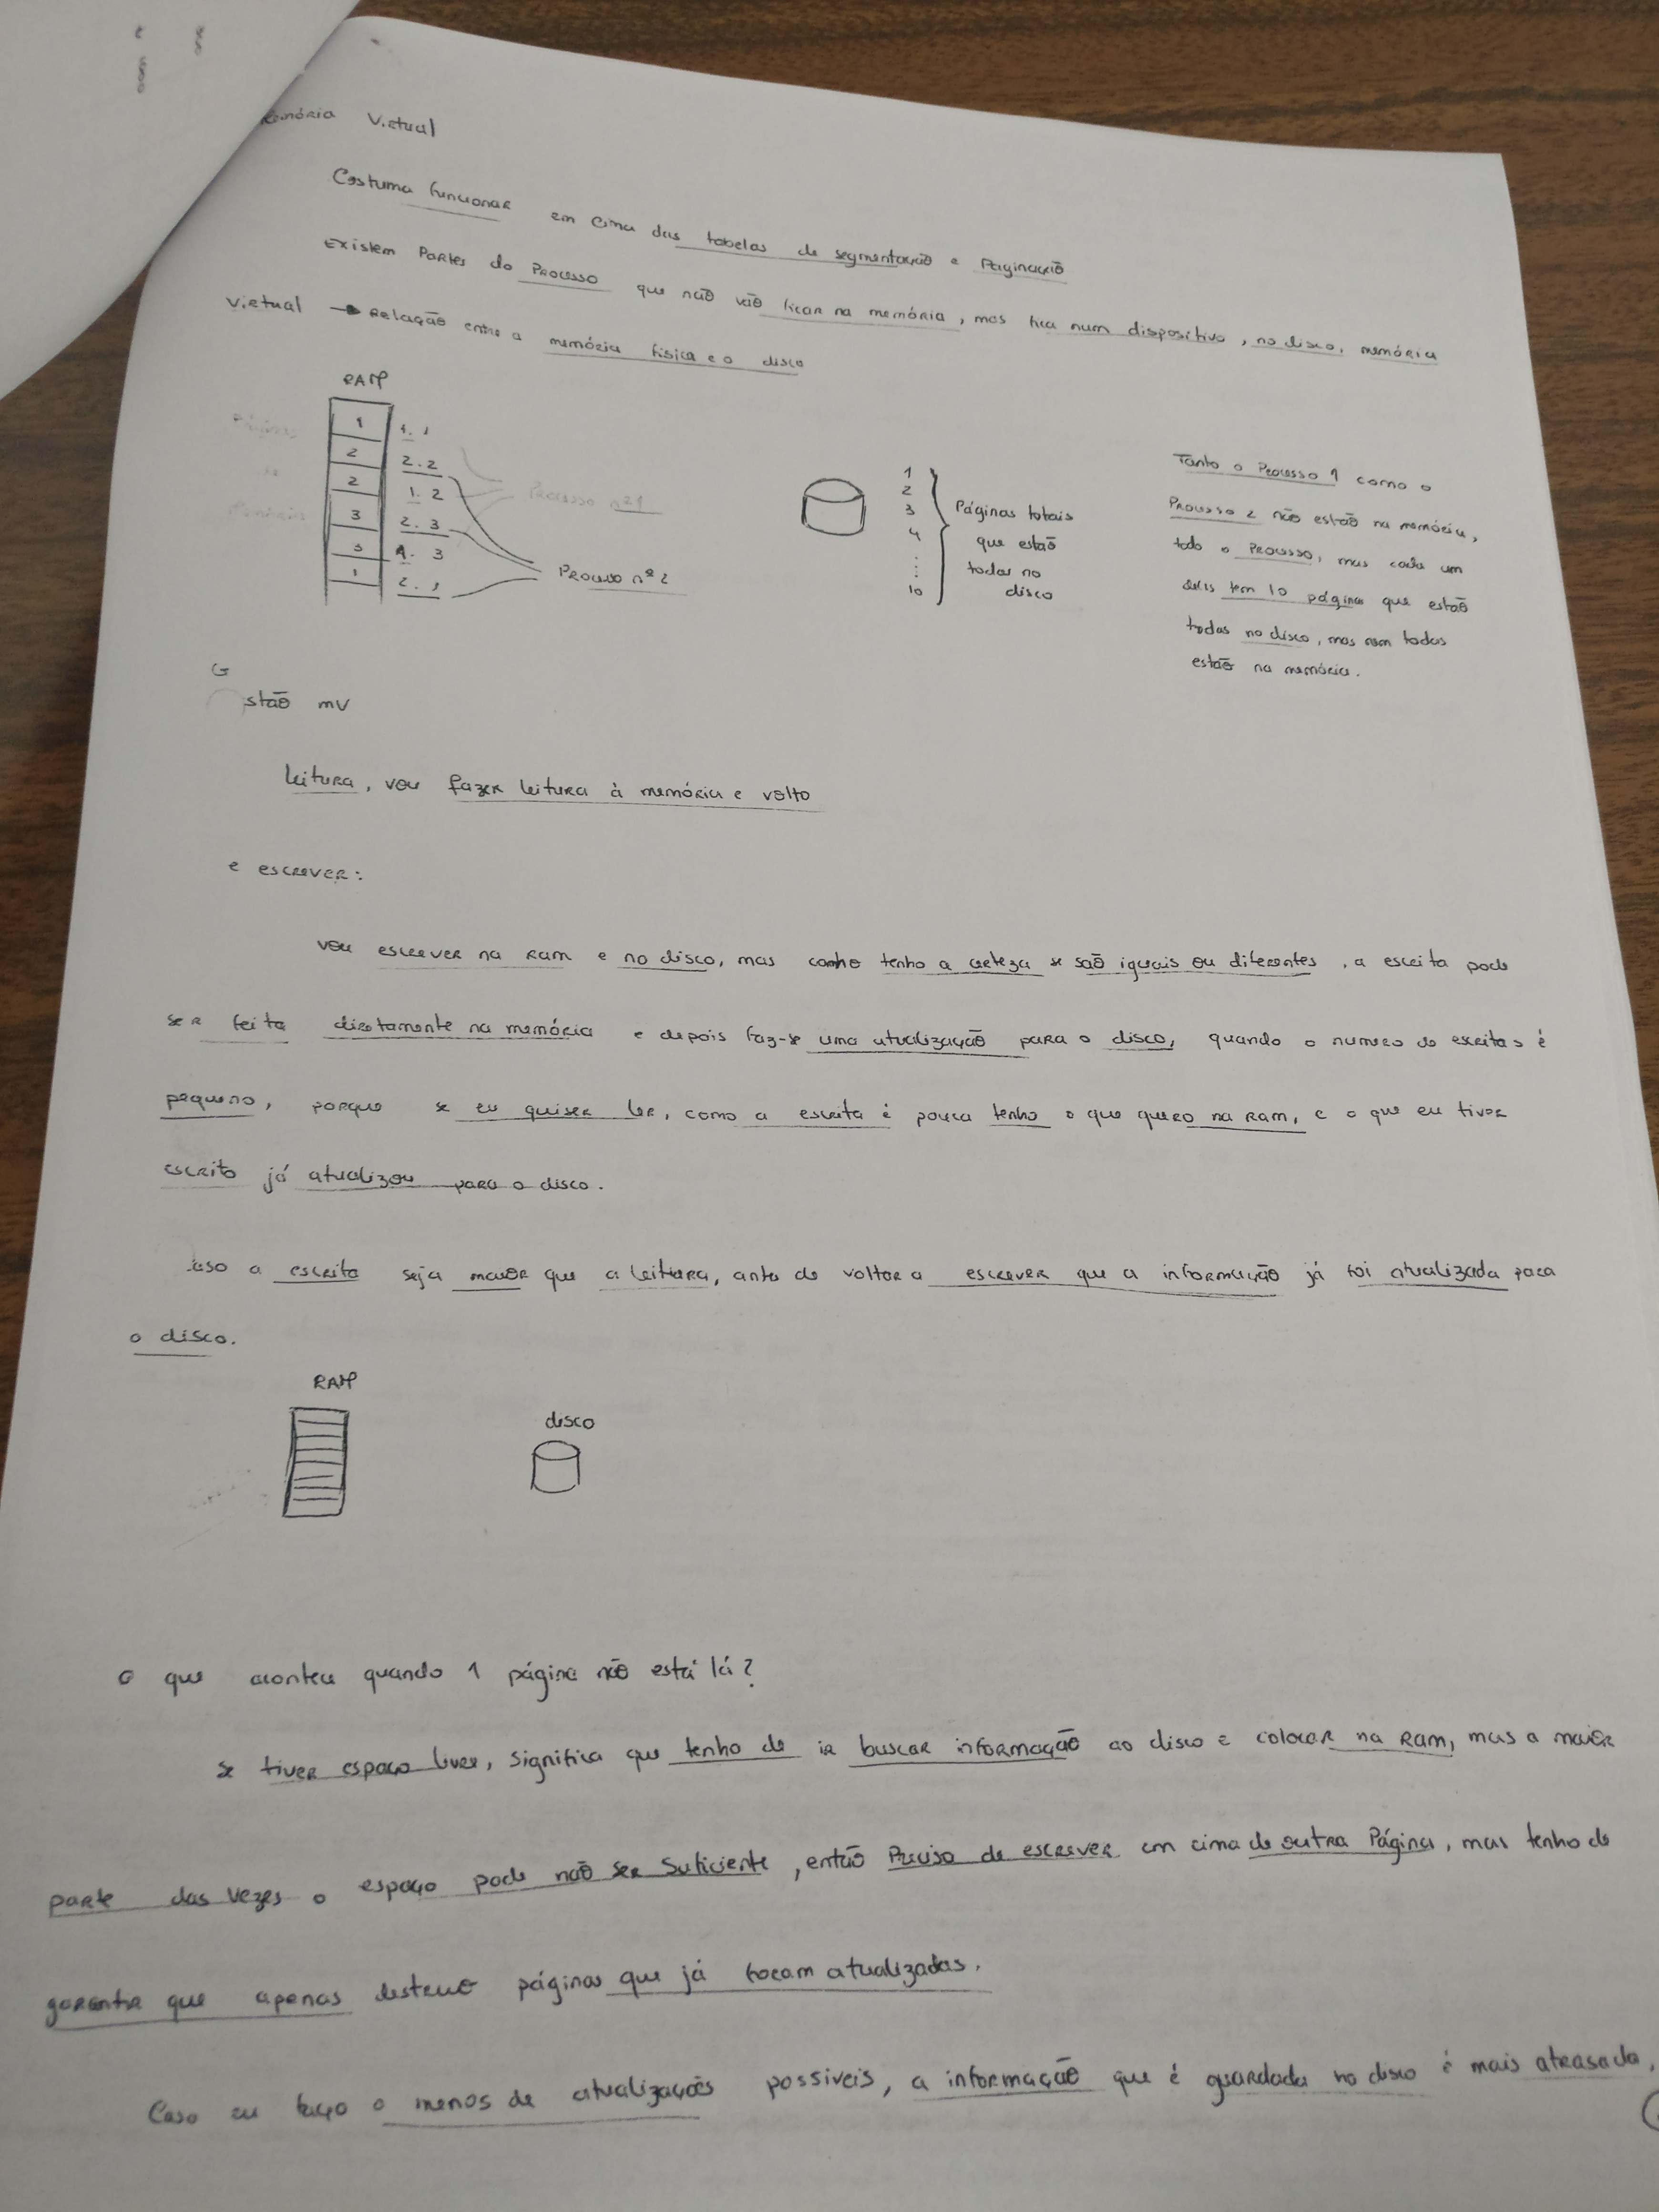 emória Virtual
Costuma funcionar em cima das tabelas de segmentação e Paginação
Existem Partes do Processo que não vão ficar na memória, mas fica num dispositivo, no disco, memória
virtual → Relação entre a memória física e o disco
RAM
1 1.1
2 2.2
2 1.2
3 2.3
3 1.3
1 2.1
Processo nº1
Processo nº2
1
2
3
4
10
Páginas totais
que estão
todas no
disco
Tanto o Processo 1 como o
Processo 2 não estão na memória,
todo o Processo, mas cada um
deles tem 10 páginas que estão
todas no disco, mas nem todas
estão na memória.
G
stão mV
leitura, vou fazer leitura à memória e volto
e escrever:
vou escrever na ram e no disco, mas tenho a certeza se são iguais ou diferentes, a escrita pode
ser feita diretamente na memória e depois faz-se uma atualização para o disco, quando o numero de escritas é
pequeno, porque se eu quiser ler, como a escrita é pouca tenho o que quero na ram, e o que eu tiver
escrito já atualizou para o disco.
aso a escrita seja maior que a leitura, antes de voltar a escrever que a informação já foi atualizada para
o disco.
RAM
disco
O que acontece quando 1 página não está lá?
se tiver espaço livre, significa que tenho de ir buscar informação ao disco e colocar na ram, mas a maior
parte das vezes o espaço pode não ser suficiente, então Preciso de escrever em cima de outra Página, mas tenho de
garantir que apenas destruo páginas que já foram atualizadas.
Caso eu faço o menos de atualizações possiveis, a informação que é guardada no disco é mais atrasada,